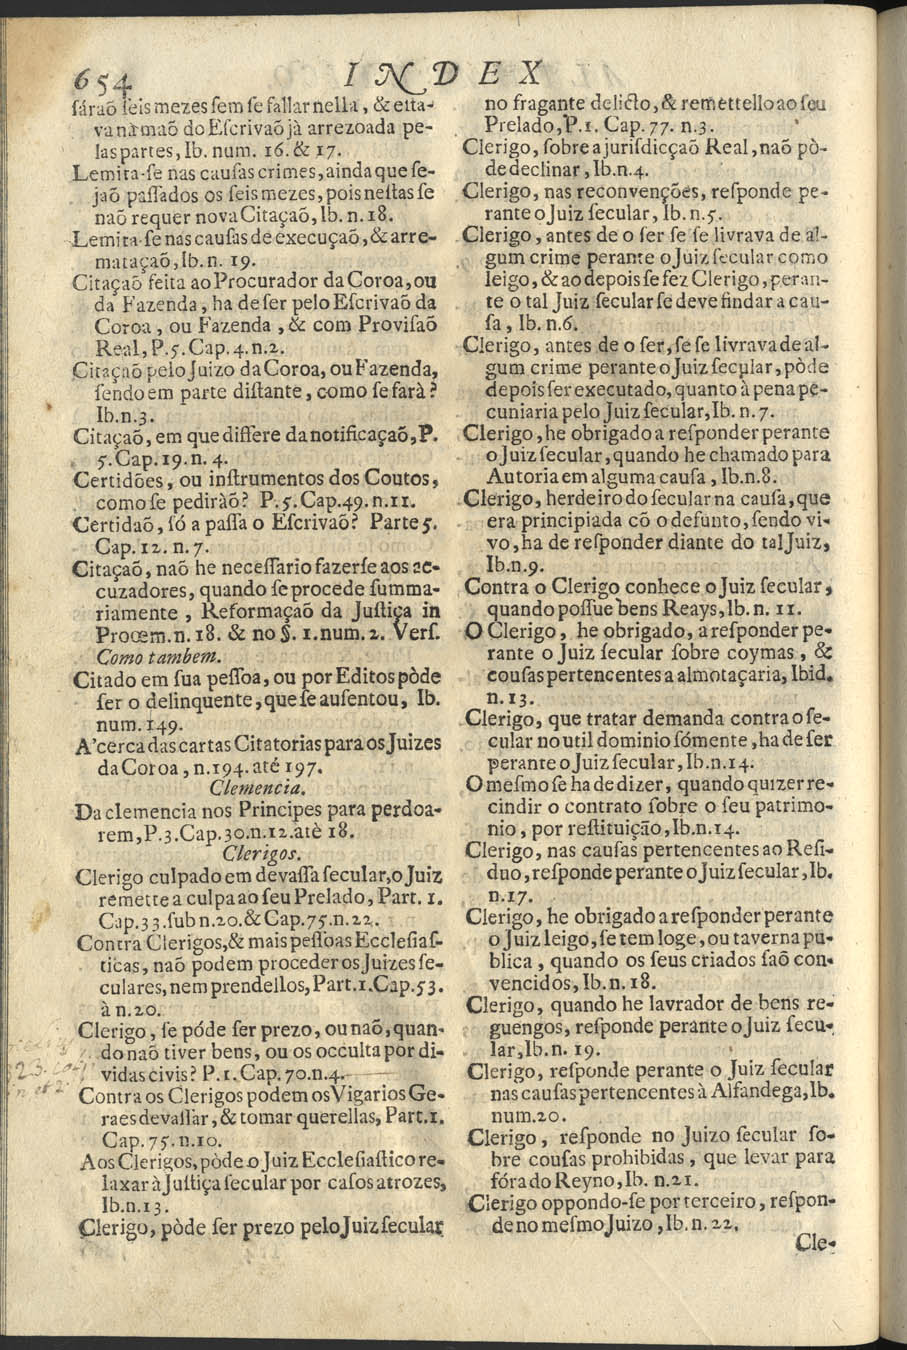 654 INDEX
ſáraõ ſeis mezes ſem ſe fallar nella, & eſta-
va na maõ do Eſcrivaõ jà arrezoada pe-
las partes, Ib. num. 16. & 17.
Lemita-ſe nas cauſas crimes, ainda que ſe-
jaõ paſſados os ſeis mezes, pois neſtas ſe
naõ requer nova Citaçaõ, Ib. n. 18.
Lemita-ſe nas cauſas de execuçaõ, & arre-
mataçaõ, Ib. n. 19.
Citaçaõ feita ao Procurador da Coroa, ou
da Fazenda, ha de ſer pelo Eſcrivaõ da
Coroa, ou Fazenda, & com Proviſaõ
Real, P. 5. Cap. 4. n. 2.
Citaçaõ pelo Juizo da Coroa, ou Fazenda,
ſendo em parte diſtante, como ſe farà?
Ib. n. 3.
Citaçaõ, em que differe da notificaçaõ, P.
5. Cap. 19. n. 4.
Certidões, ou inſtrumentos dos Coutos,
como ſe pediràõ? P. 5. Cap. 49. n. 11.
Certidaõ, ſó a paſſa o Eſcrivaõ? Parte 5.
Cap. 12. n. 7.
Citaçaõ, naõ he neceſſario fazerſe aos ac-
cuzadores, quando ſe procede ſumma-
riamente, Reformaçaõ da Juſtiça in
Proœm. n. 18. & no §. 1. num. 2. Verſ.
Como tambem.
Citado em ſua peſſoa, ou por Editos pòde
ſer o delinquente, que ſe auſentou, Ib.
num. 149.
A'cerca das cartas Citatorias para os Juizes
da Coroa, n. 194. até 197.
Clemencia.
Da clemencia nos Principes para perdoa-
rem, P. 3. Cap. 30. n. 12. atè 18.
Clerigos.
Clerigo culpado em devaſſa ſecular, o Juiz
remette a culpa ao ſeu Prelado, Part. 1.
Cap. 33. ſub n. 20. & Cap. 75. n. 22.
Contra Clerigos, & mais peſſoas Eccleſiaſ-
ticas, naõ podem proceder os Juizes ſe-
culares, nem prendellos, Part. 1. Cap. 53.
à n. 20.
Clerigo, ſe póde ſer prezo, ou naõ, quan-
do naõ tiver bens, ou os occulta por di-
vidas civis? P. 1. Cap. 70. n. 4.
Contra os Clerigos podem os Vigarios Ge-
raes devaſſar, & tomar querellas, Part. 1.
Cap. 75. n. 10.
Aos Clerigos, pòde o Juiz Eccleſiaſtico re-
laxar à Juſtiça ſecular por caſos atrozes,
Ib. n. 13.
Clerigo, pòde ſer prezo pelo Juiz ſecular
no fragante delicto, & remettello ao ſeu
Prelado, P. 1. Cap. 77. n. 3.
Clerigo, ſobre a juriſdicçaõ Real, naõ pò-
de declinar, Ib. n. 4.
Clerigo, nas reconvenções, reſponde pe-
rante o Juiz ſecular, Ib. n. 5.
Clerigo, antes de o ſer ſe ſe livrava de al-
gum crime perante o Juiz ſecular como
leigo, & ao depois ſe fez Clerigo, peran-
te o tal Juiz ſecular ſe deve findar a cau-
ſa, Ib. n. 6.
Clerigo, antes de o ſer, ſe ſe livrava de al-
gum crime perante o Juiz ſecular, pòde
depois ſer executado, quanto à pena pe-
cuniaria pelo Juiz ſecular, Ib. n. 7.
Clerigo, he obrigado a reſponder perante
o Juiz ſecular, quando he chamado para
Autoria em alguma cauſa, Ib. n. 8.
Clerigo, herdeiro do ſecular na cauſa, que
era principiada cõ o defunto, ſendo vi-
vo, ha de reſponder diante do tal Juiz,
Ib. n. 9.
Contra o Clerigo conhece o Juiz ſecular,
quando poſſue bens Reays, Ib. n. 11.
O Clerigo, he obrigado, a reſponder pe-
rante o Juiz ſecular ſobre coymas, &
couſas pertencentes a almotaçaria, Ibid.
n. 13.
Clerigo, que tratar demanda contra o ſe-
cular no util dominio ſómente, ha de ſer
perante o Juiz ſecular, Ib. n. 14.
O meſmo ſe ha de dizer, quando quizer re-
cindir o contrato ſobre o ſeu patrimo-
nio, por reſtituição, Ib. n. 14.
Clerigo, nas cauſas pertencentes ao Reſi-
duo, reſponde perante o Juiz ſecular, Ib.
n. 17.
Clerigo, he obrigado a reſponder perante
o Juiz leigo, ſe tem loge, ou taverna pu-
blica, quando os ſeus criados ſaõ con-
vencidos, Ib. n. 18.
Clerigo, quando he lavrador de bens re-
guengos, reſponde perante o Juiz ſecu-
lar, Ib. n. 19.
Clerigo, reſponde perante o Juiz ſecular
nas cauſas pertencentes à Alfandega, Ib.
num. 20.
Clerigo, reſponde no Juizo ſecular ſo-
bre couſas prohibidas, que levar para
fóra do Reyno, Ib. n. 21.
Clerigo oppondo-ſe por terceiro, reſpon-
de no meſmo Juizo, Ib. n. 22.
Cle-